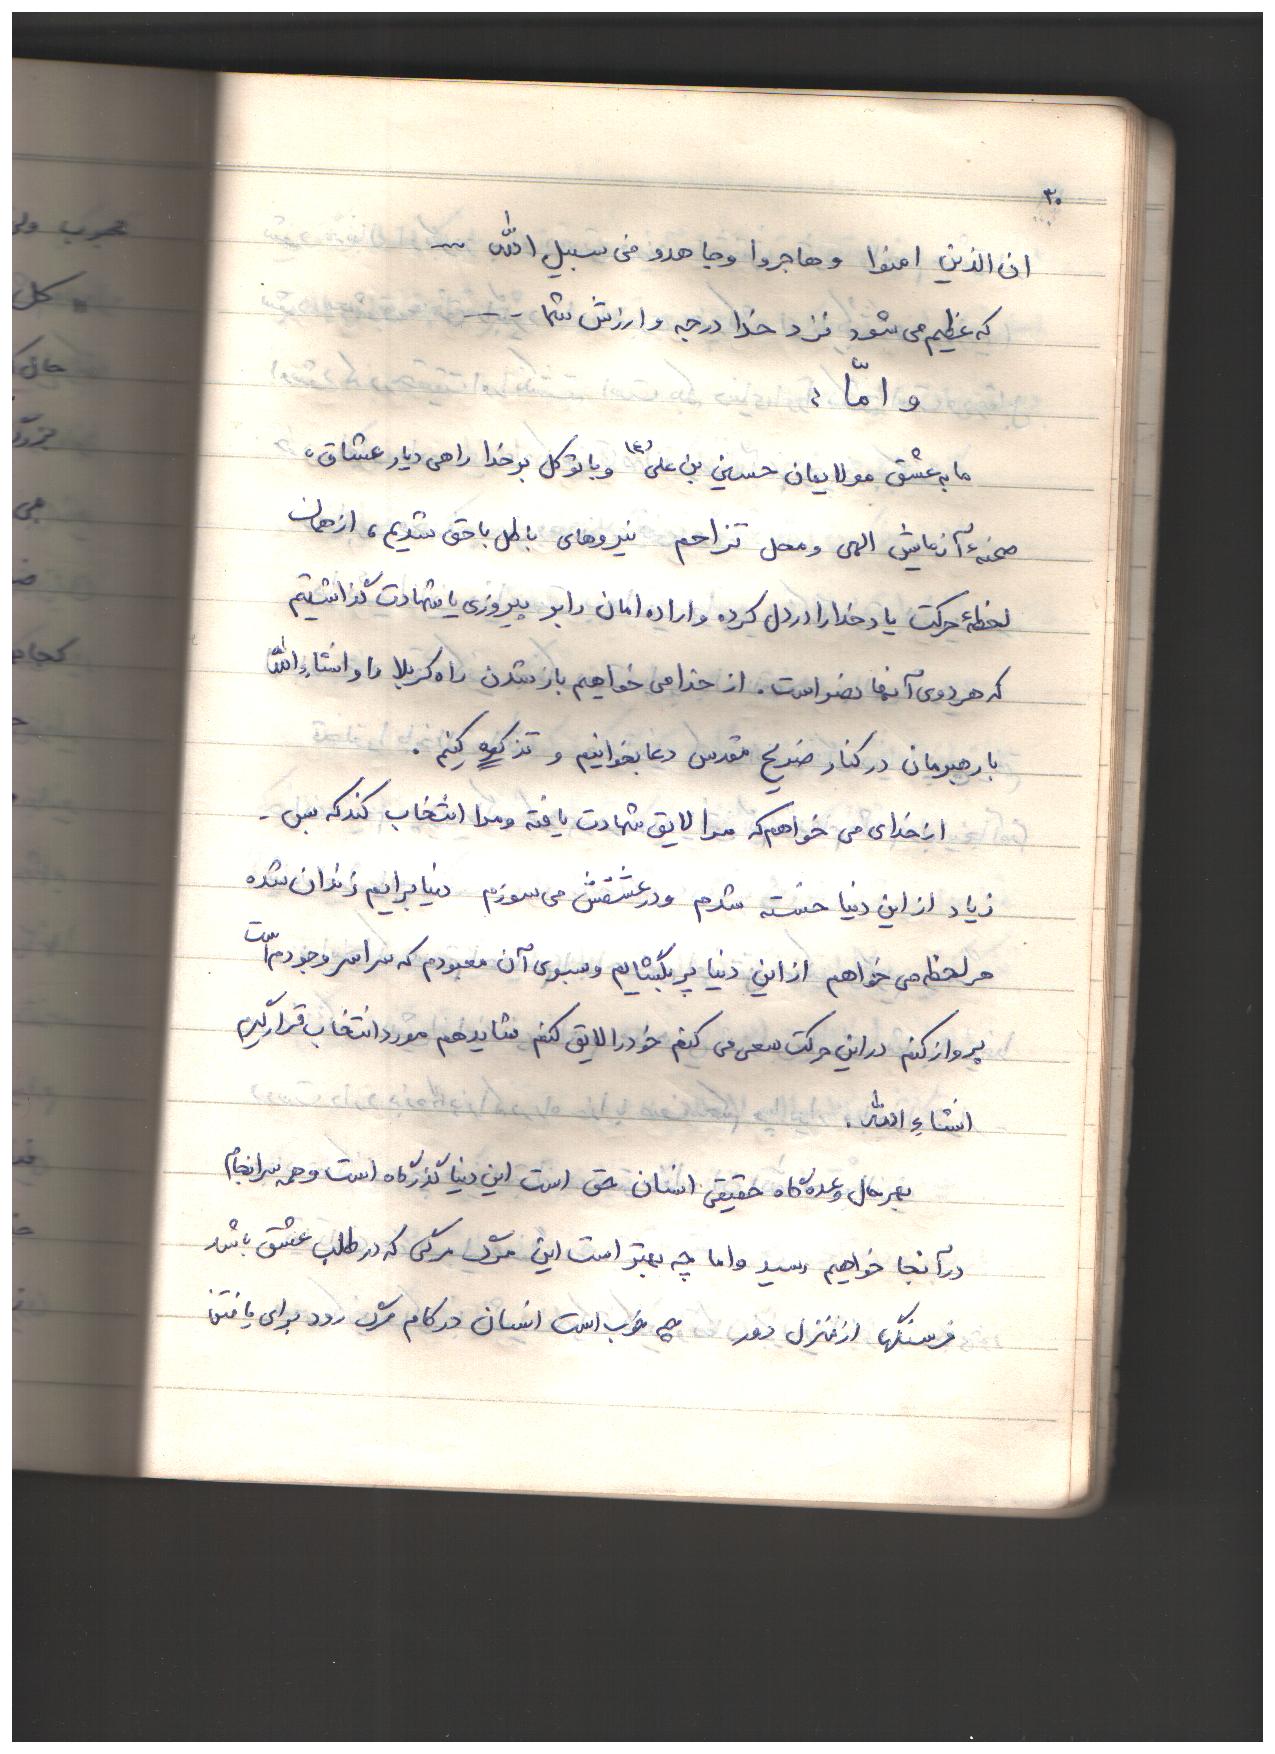 ۳۰
ان الذین امنوا وهاجروا وجاهدو فی سبیل الله ...
که عظیم می شود نزد خدا درجه و ارزش شما ...
و امّا :
ما به عشق مولایمان حسین بن علی (ع) و با توکل بر خدا راهی دیار عشاق،
صحنهٔ آزمایش الهی و محل تزاحم نیروهای باطل با حق شدیم، از همان
لحظهٔ حرکت یاد خدا را در دل کرده و اراده امان را بر پیروزی یا شهادت گذاشتیم
که هردوی آنها است. از خدا می خواهیم باز شدن راه کربلا را و انشاءالله
با رهبرمان در کنار ضریح مقدس دعا بخوانیم و کنیم.
از خدای می خواهم که مرا لایق شهادت یافته و مرا انتخاب کند که بس
زیاد از این دنیا خسته شدم و در عشقش می سوزم دنیا برایم زندان شده
هر لحظه می خواهم از این دنیا پر بگشایم و بسوی آن معبودم که سراسر وجودم است
پرواز کنم در این حرکت سعی می کنم خود را لایق کنم شاید هم مورد انتخاب قرار گیرم
انشاء الله.
بهرحال وعده گاه حقیقی انسان حق است این دنیا گذرگاه است و همه سرانجام
در آنجا خواهیم رسید و اما چه بهتر است این مرگ مرگی که در طلب عشق باشد
فرسنگها از منزل دور چه خوب است انسان در کام مرگ رود برای یافتن
محبوب
کل
حال
بزرگ
می
کجا